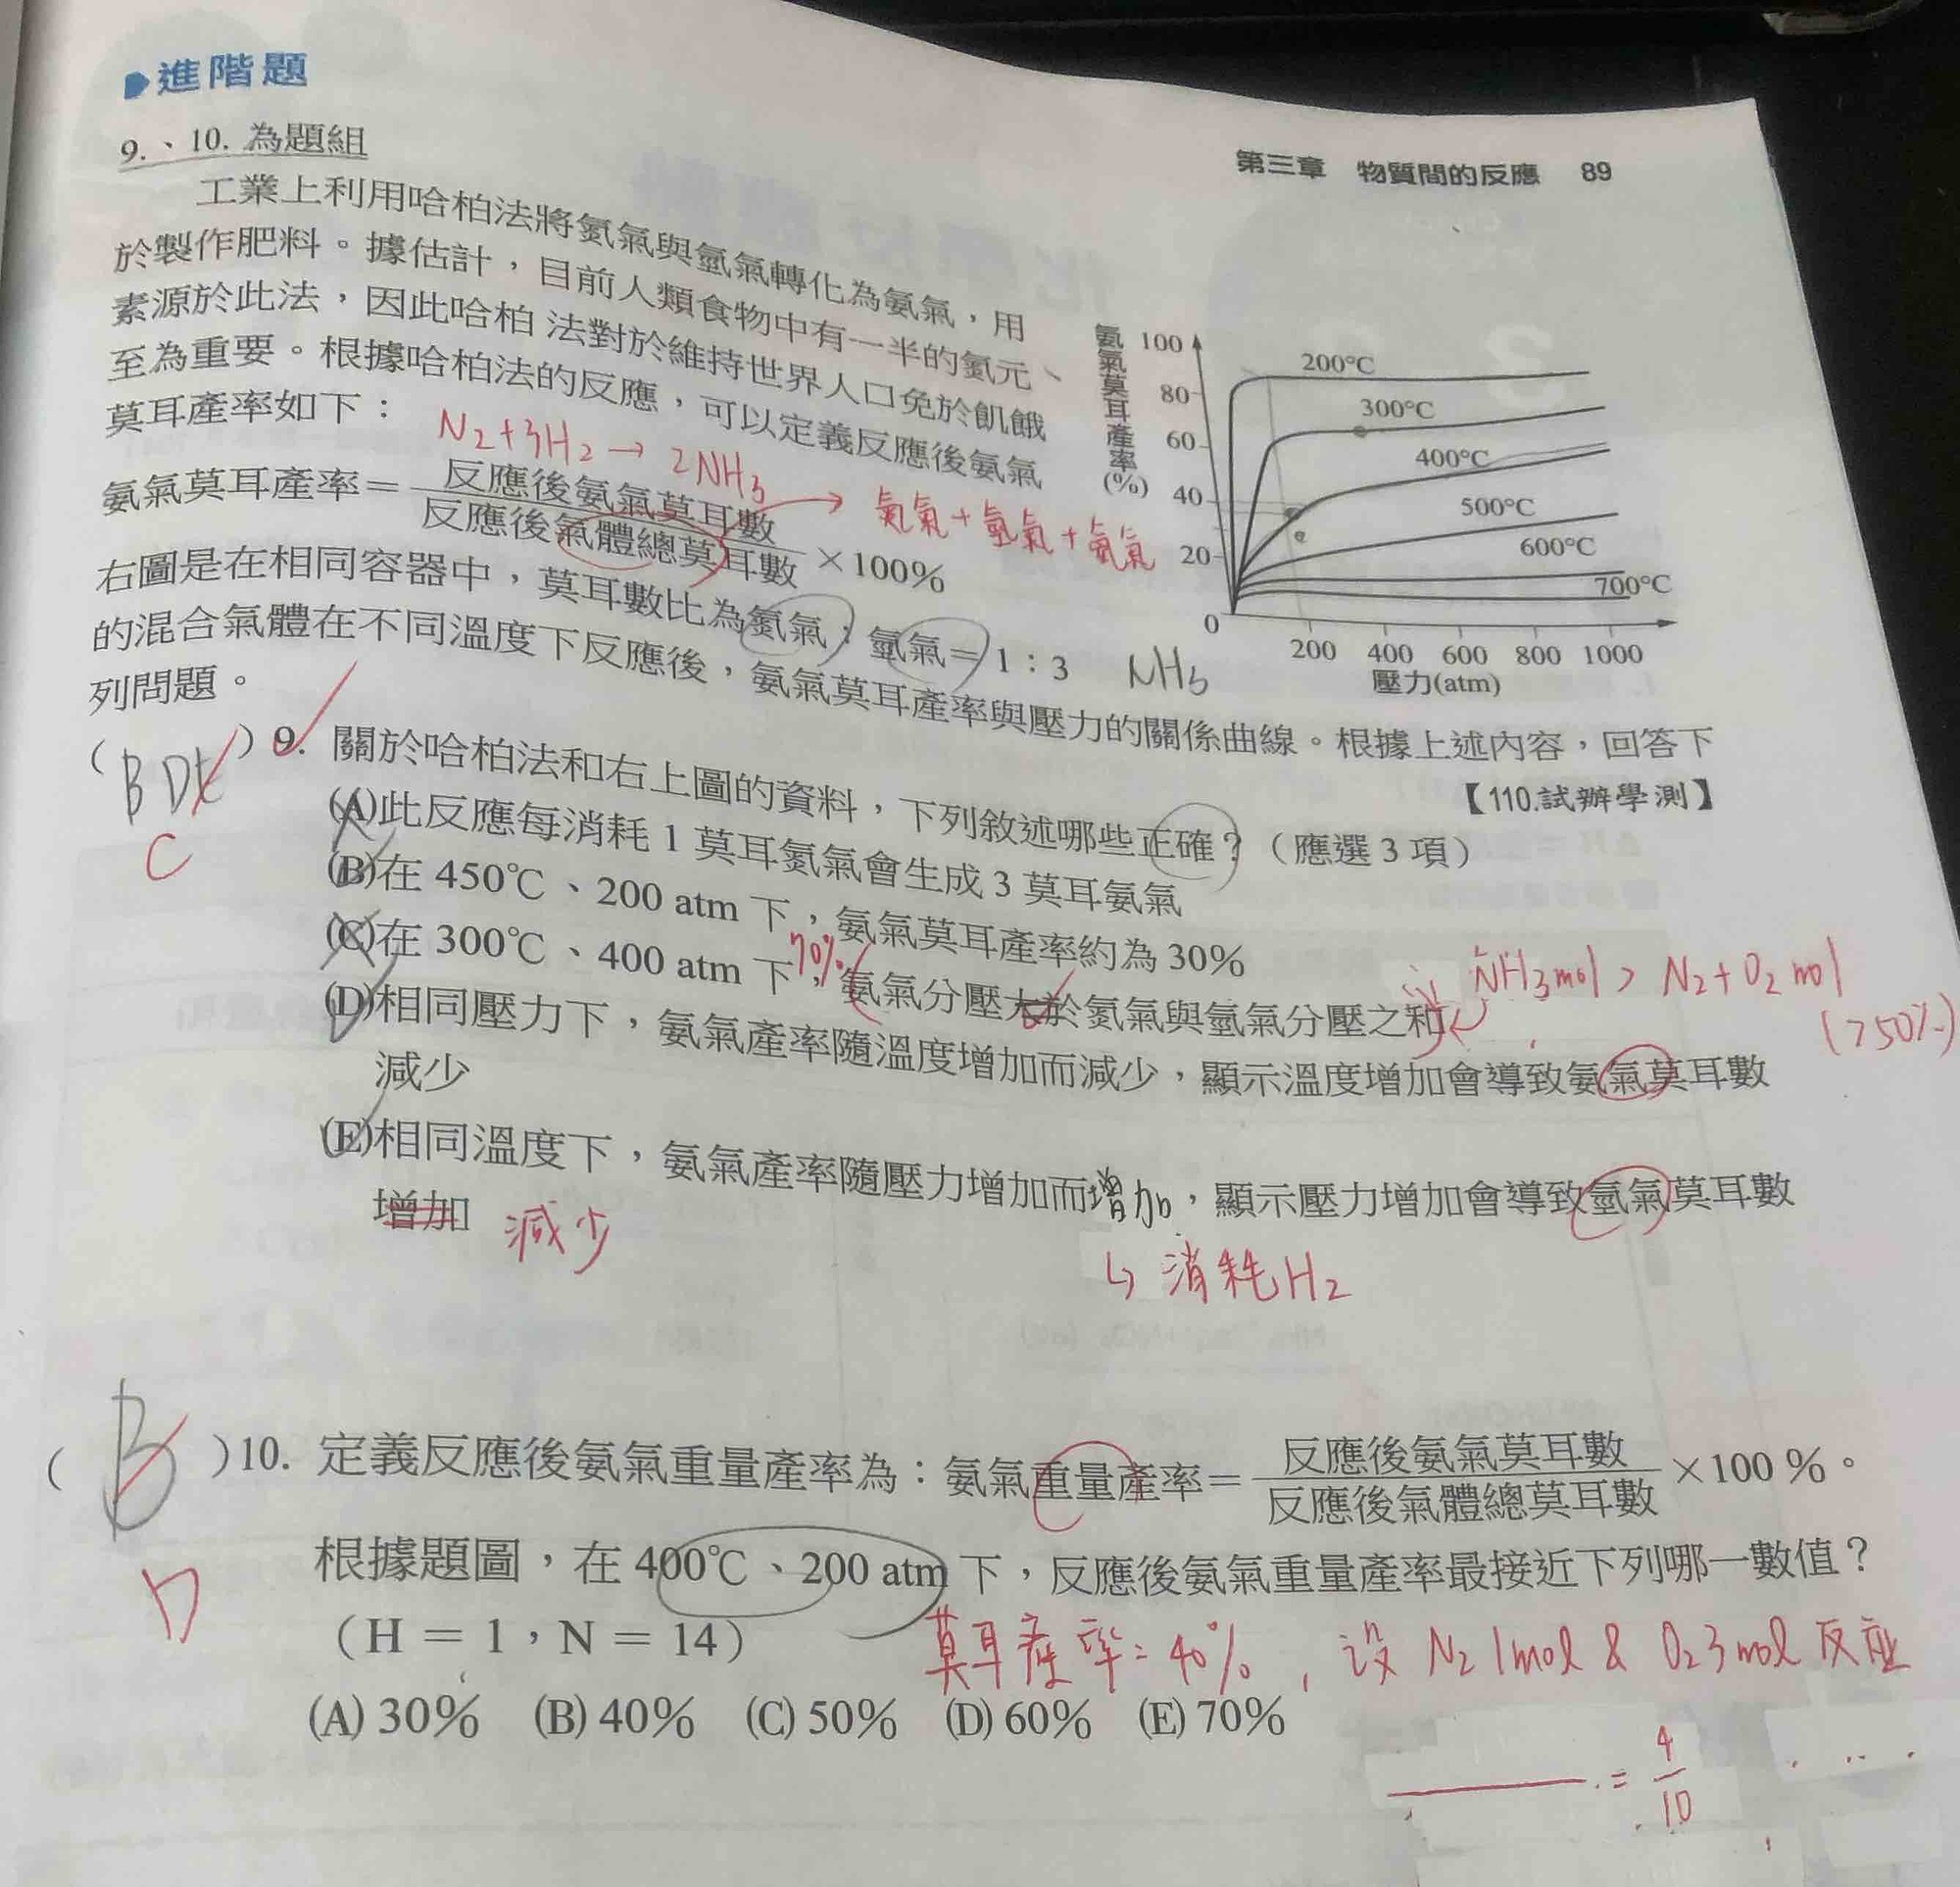 進階題
第三章 物質間的反應 89
9.、10. 為題組
工業上利用哈柏法將氮氣與氫氣轉化為氨氣，用
於製作肥料。據估計，目前人類食物中有一半的氮元、
素源於此法，因此哈柏 法對於維持世界人口免於飢餓
至為重要。根據哈柏法的反應，可以定義反應後氨氣
莫耳產率如下：
N2+3H2→2NH3
氨氣莫耳產率＝反應後氨氣莫耳數
反應後氣體總莫耳數
×100%
→ 氮氣+氫氣+氨氣
氨氣莫耳產率(%)
100
80
60
40
20
0
200℃
300℃
400℃
500℃
600℃
700℃
200 400 600 800 1000
壓力(atm)
右圖是在相同容器中，莫耳數比為氮氣：氫氣＝1：3
NH3
的混合氣體在不同溫度下反應後，氨氣莫耳產率與壓力的關係曲線。根據上述內容，回答下
列問題。
【110.試辦學測】
(BDE) 9. 關於哈柏法和右上圖的資料，下列敘述哪些正確？（應選 3 項）
C
(A)此反應每消耗 1 莫耳氮氣會生成 3 莫耳氨氣
(B)在 450℃、200 atm 下，氨氣莫耳產率約為 30%
70%
(C)在 300℃、400 atm 下，氨氣分壓大於氮氣與氫氣分壓之和
NH3mol > N2+O2 mol
(>50%)
(D)相同壓力下，氨氣產率隨溫度增加而減少，顯示溫度增加會導致氨氣莫耳數
減少
(E)相同溫度下，氨氣產率隨壓力增加而增加，顯示壓力增加會導致氫氣莫耳數
增加 減少
↳ 消耗H2
(B)10. 定義反應後氨氣重量產率為：氨氣重量產率＝反應後氨氣莫耳數
反應後氣體總莫耳數
×100 %。
D
根據題圖，在 400℃、200 atm 下，反應後氨氣重量產率最接近下列哪一數值？
（H＝1，N＝14）
莫耳產率=40%，設 N2 1mol & O2 3mol 反應
(A) 30% (B) 40% (C) 50% (D) 60% (E) 70%
= 4
10